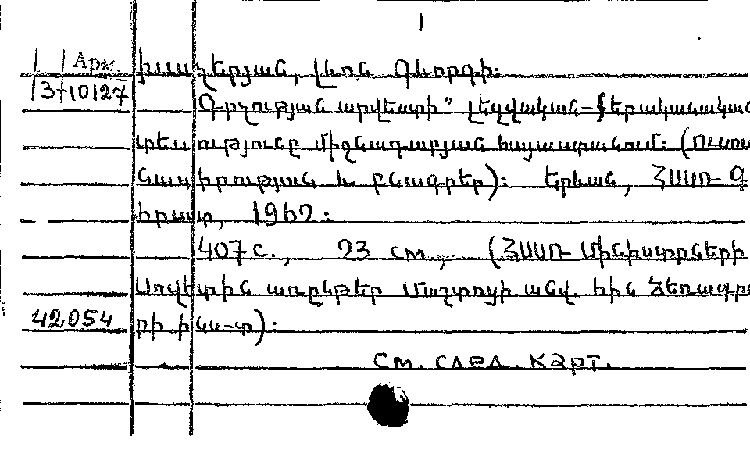 1
Арм. Խաչերյան, Լևոն Գևորգի:
13-10127
"Գրչության արվեստի" լեզվական-քերականական
տեսությունը միջնադարյան Հայաստանում: (Ուսում
նասիրություն և բնագրեր): Երևան, ՀՍՍՌ Գ
հրատ, 1962:
407 с., 23 см., (ՀՍՍՌ Մինիստրների
Սովետին առընթեր Մաշտոցի անվ. հին ձեռագր
42054 րի ինս-տ):
См. след. карт.